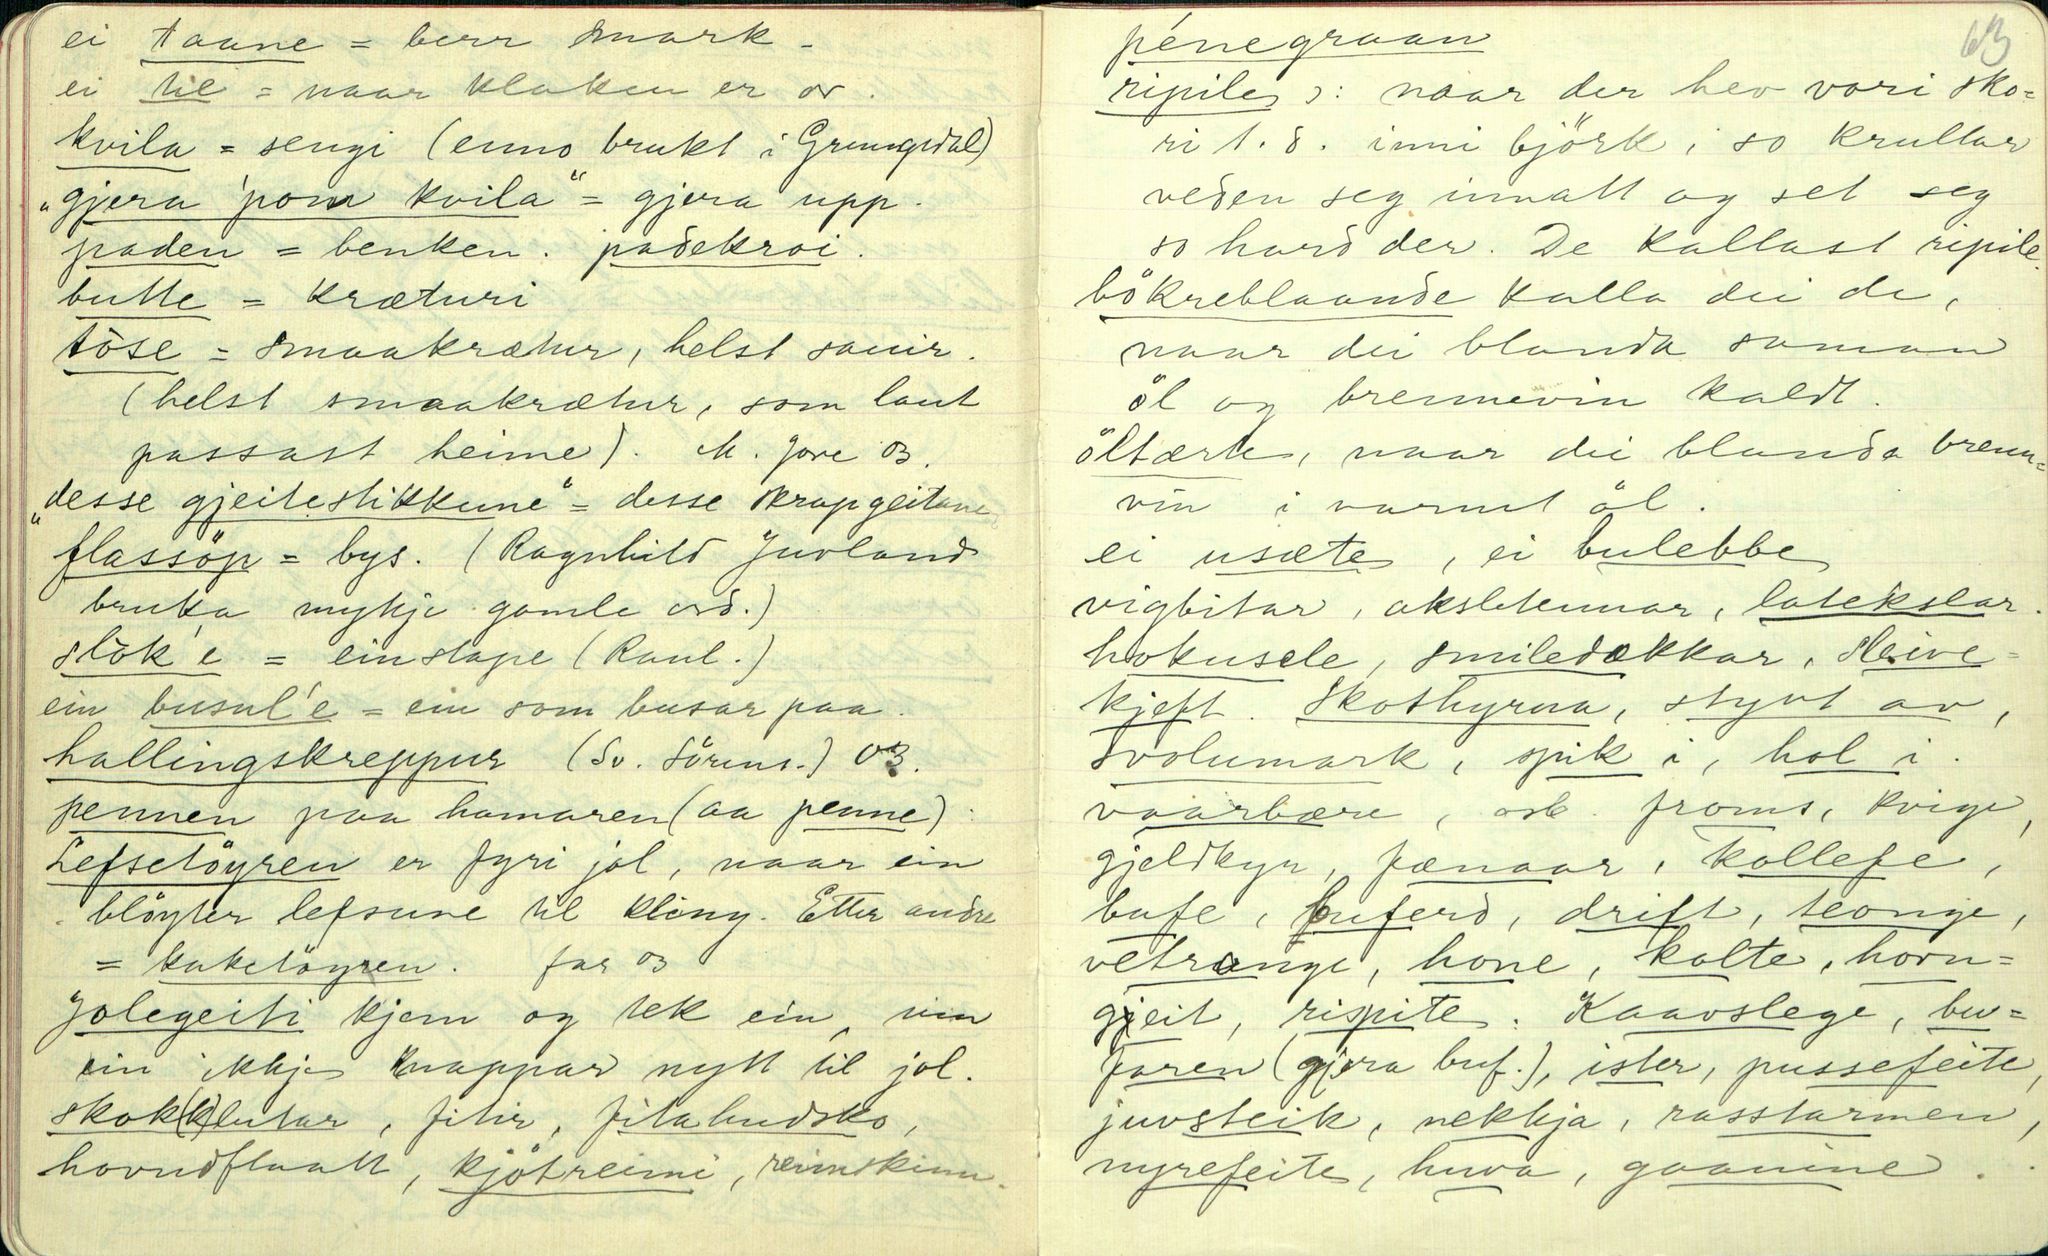 ei taane = berr smark.
ei til = naar klaken er or.
kvila = sengi (enno brukt i Grungedal)
"gjera 'pom kvila" = gjera upp.
paden = benken. padekroi.
butte = kræturi
töse = smaakrætur, helst sauir.
(helst smaakrætur, som laut
passast heime). M. Jore 03.
"desse gjeitestikkune" = desse skrapgeitane
flassöp = bys. (Ragnhild Juvland
bruka mykje gamle ord.)
slòk'e = einstape (Raul.)
ein busul'e = ein som busar paa.
hallingskreppur (Sv. Sörens.) 03.
pennen paa hamaren (aa penne):
Lefsetöyren er fyri jol, naar ein
blöyter lefsune til kling. Etter andre
= kaketöyren. far 03
Jolegeiti kjem og tek ein, um
ein ikkje knappar nytt til jol.
skok(k)lutar, fitir, fitahudsko,
hovudflaatt, kjötreimi, reimskinn.
63
pénegraan
ripile ɔ: naar der hev vori sko=
ri t. d. inni björk, so krullar
veden seg innatt og set seg
so hard der. De kallast ripile.
bökreblaande kalla dei de,
naar dei blanda saman
öl og brennevin kaldt.
öltærte, naar dei blanda brenn=
vin i varmt öl.
ei usæte, ei bulebbe
vigbitar, aksletennar, latekslar.
hokusele, smiledokkar, Kleive=
kjeft. Skothyrna, styvt av,
svolumark, spik i, hol i.
vaarbære, ost froms, kvige,
gjeldkyr, fænaar, kollefe,
bufe, buferd, drift, teonge,
vetrunge, hone, kolte, horn=
gjeit, rispite. Kaavslege, bu=
faren (gjera buf.), ister, pussefeite,
juvsteik, nekkja, rasstarmen,
nyrefeite, huva, gaanine.